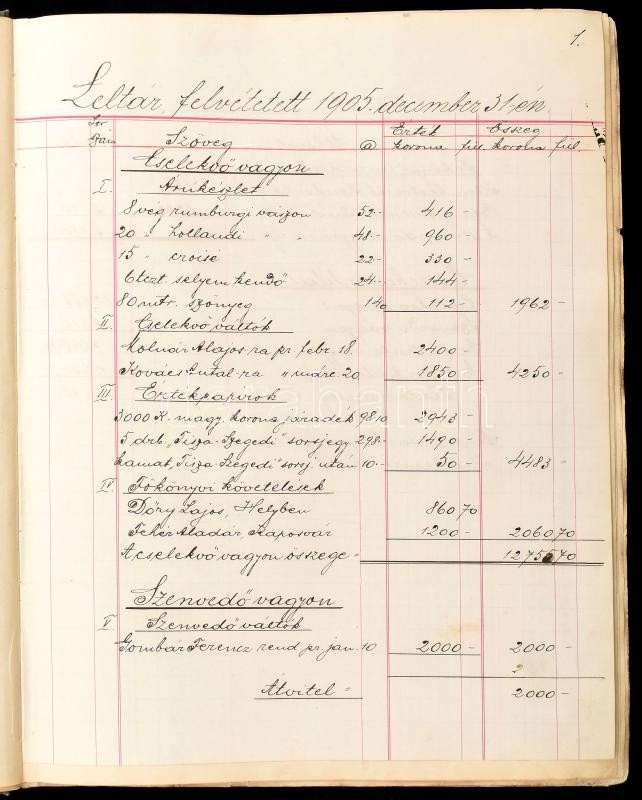 1.
Leltár, felvétetett 1905. december 31-én.
Sor szám Szöveg @ Érték korona fil. Összeg korona fil.
Cselekvő vagyon
I. Árúkészlet
8 vég rumburgi vászon 52.- 416 -
20 " hollandi " . 48.- 960 -
15 " croisé 22.- 330 -
6 tczt. selyem kendő 24.- 144 -
80 mtr. szőnyeg 140 112 - 1962 -
II. Cselekvő váltók
Molnár Alajos-ra pr. febr. 18. 2400 -
Kovács Antal-ra " márc. 20 1850 - 4250 -
III. Értékpapírok
3000 K. magy. korona járadék 98 10 2943 -
5 drb. "Tisza-Szegedi" sorsjegy 298.- 1490 -
kamat "Tisza Szegedi" sorsj. után 10.- 50 - 4483 -
IV. Főkönyvi követelések
Dőry Lajos, Helyben 860 70
Fehér Aladár, Kaposvár 1200 - 2060 70
A cselekvő vagyon összege = 12755 70
Szenvedő vagyon
V. Szenvedő váltók
Gombár Ferencz rend. pr. jan. 10 2000 - 2000 -
Átvitel = 2000 -
darabanth